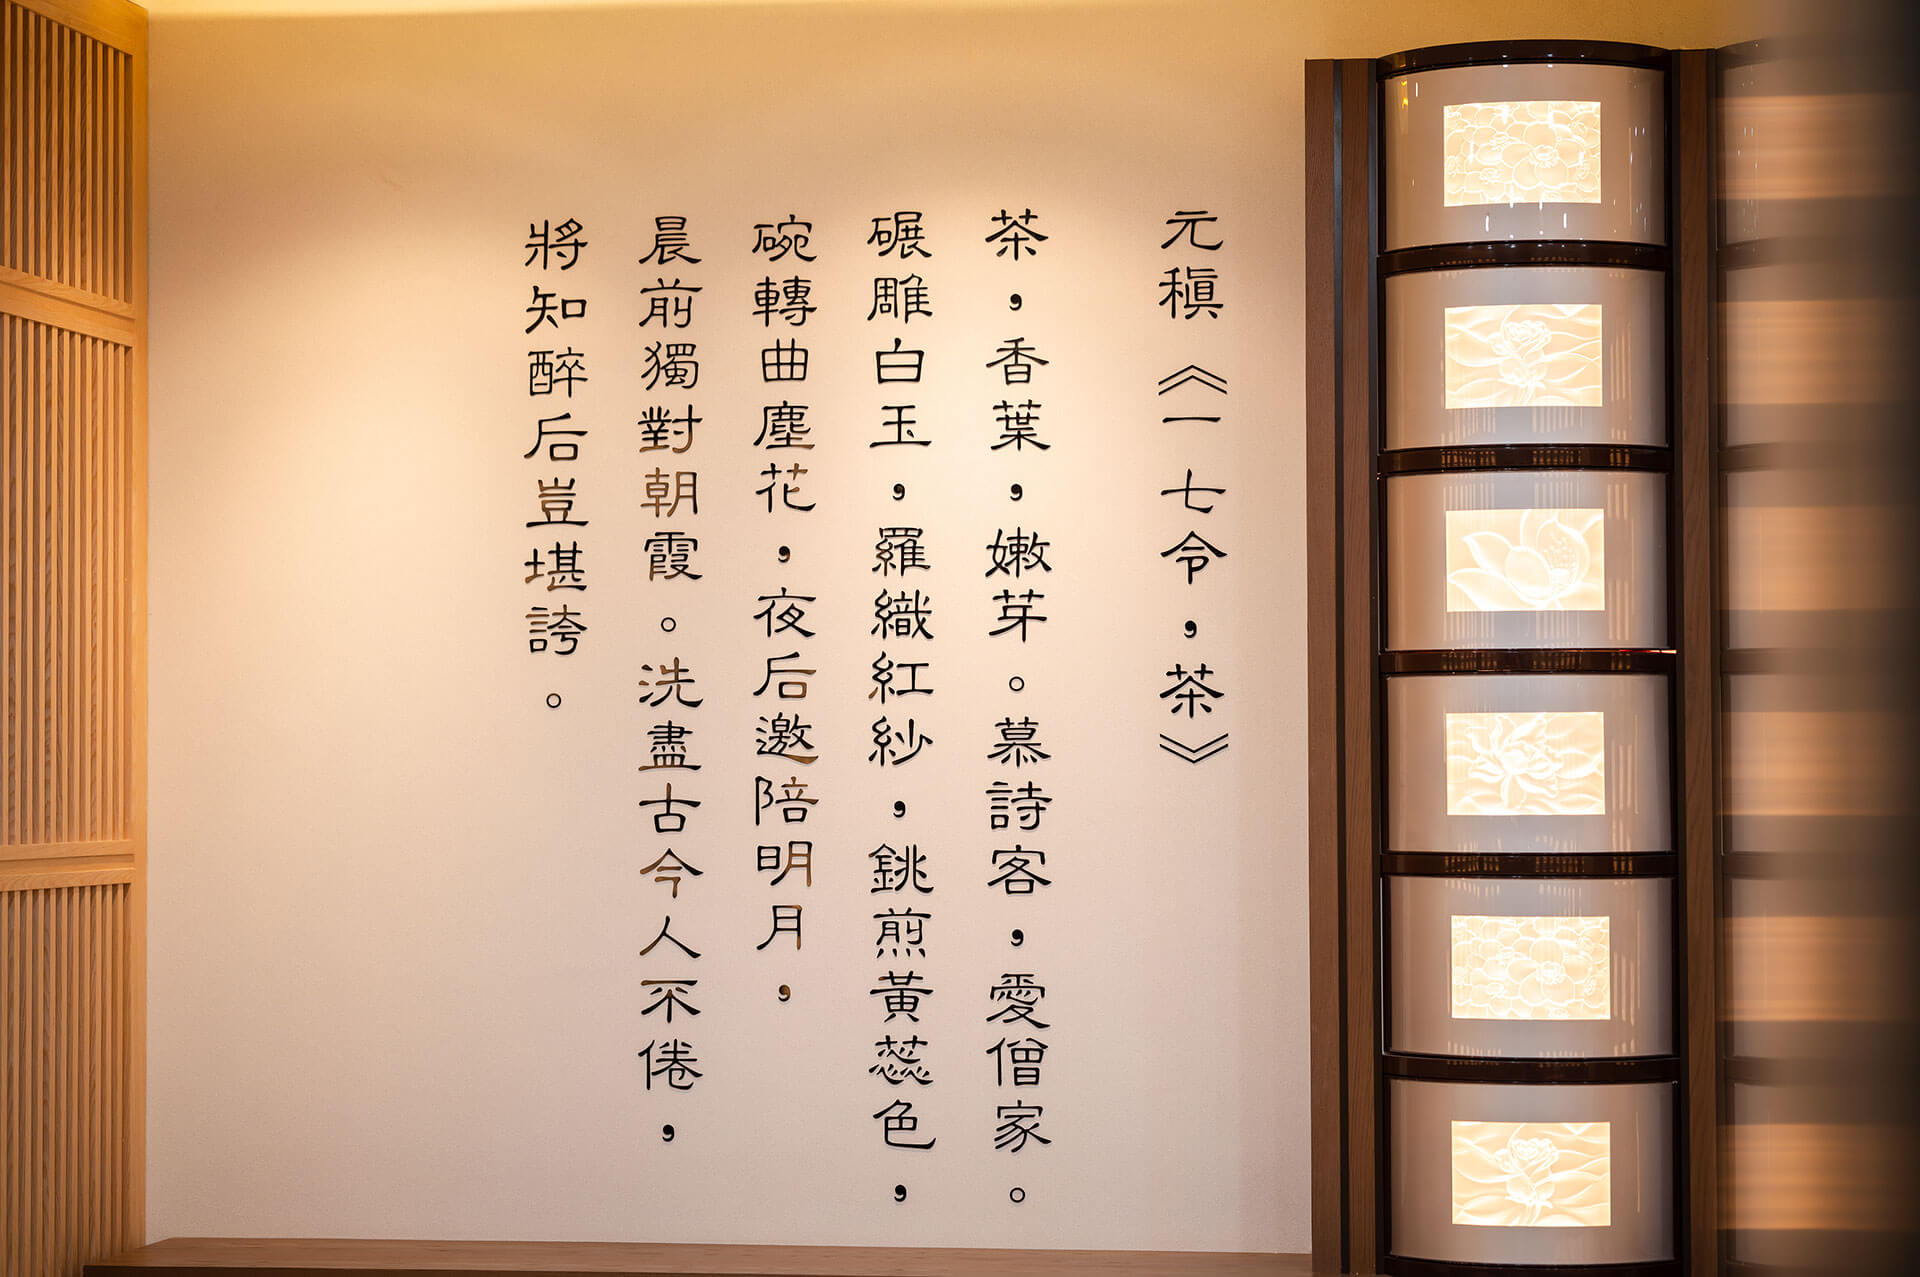 元稹《一七令，茶》
茶，香葉，嫩芽。慕詩客，愛僧家。
碾雕白玉，羅織紅紗，銚煎黃蕊色，
碗轉曲塵花，夜后邀陪明月，
晨前獨對朝霞。洗盡古今人不倦，
將知醉后豈堪誇。